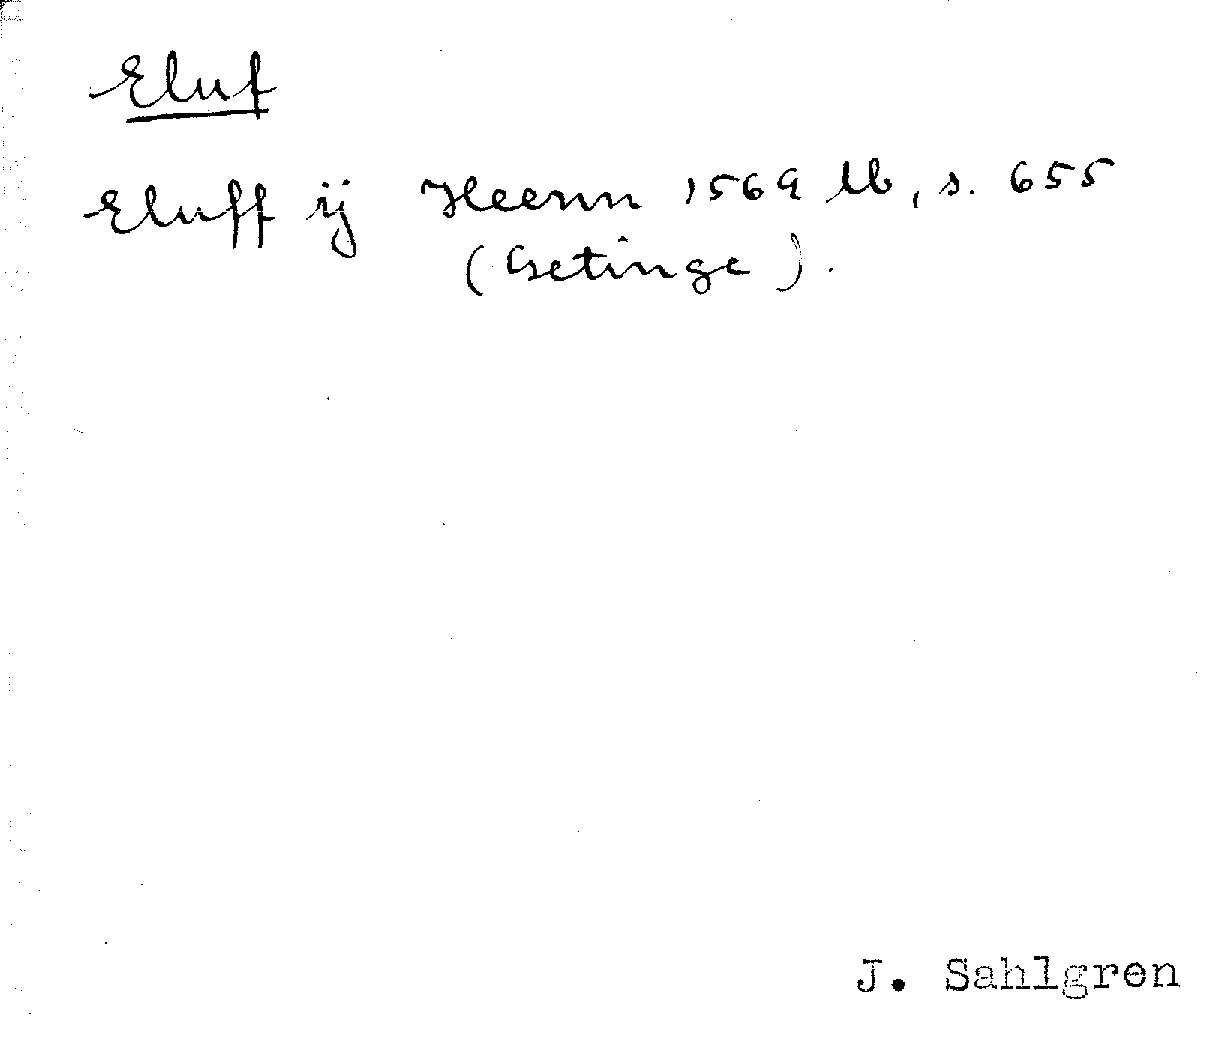 Eluf
Eluff ij Heenn 1569 lb, s. 655
(Getinge).
J. Sahlgren